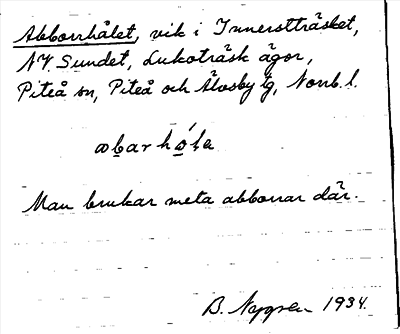 Abborrhålet, vik i Innersträsket,
NV. Sundet, Lukoträsk ägor,
Piteå sn, Piteå och Älvsby tg, Norrb. l.
abarhó̱ḷa
Man brukar meta abborrar där.
B. Nygren 1934.